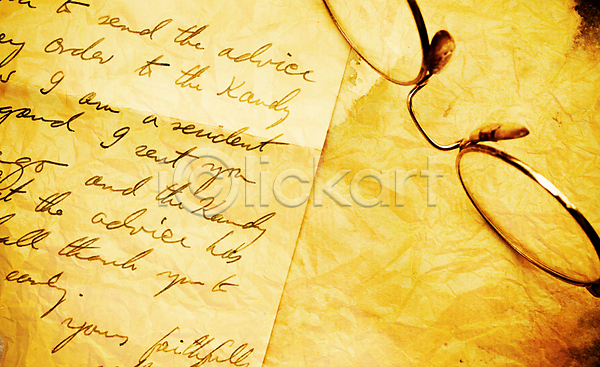 to send the advice
order to the Kandy
I am a resident
I sent you
ago and the Kandy
the advice has
all thank you to
early.
yours faithfully
iclickart